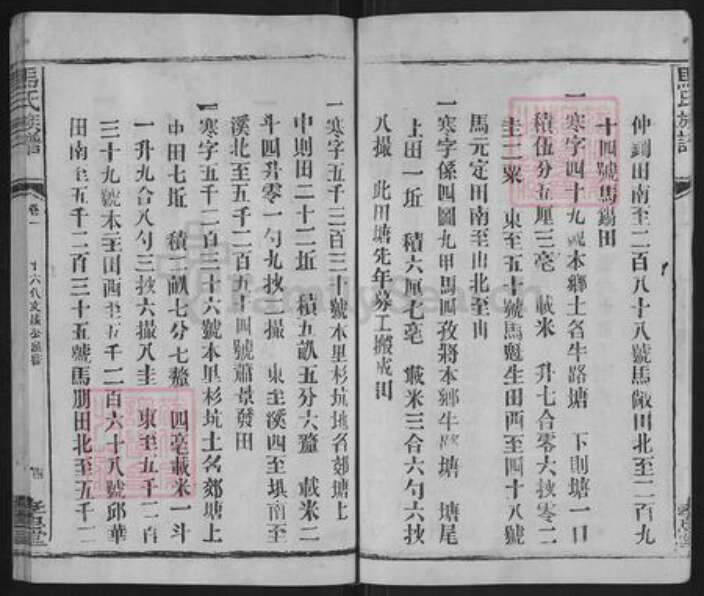 仲釗田南至二百八十八號馬俶田北至二百九
十四號馬錫田
一寒字四十九號本鄉土名牛路塘 下則塘一口
積伍分五厘三毫 載米 升七合零六抄零二
圭二粟 東至五十號馬魁生田西至四十八號
馬元定田南至山北至山
一寒字係四圖九甲馬四孜將本鄉牛路塘 塘尾
上田一坵 積六厘七毫 載米三合六勺六抄
八撮 此田塘先年募工搬成田
馬氏族譜
卷一
十六代文
四
孝思堂
一寒字五千三百三十號本里杉坑地名郊塘上
中則田二十二坵 積五畝五分六釐 載米二
斗四升零一勺九抄二撮 東至溪西至塤南至
溪北至五千二百五十四號蕭景發田
一寒字五千二百三十六號本里杉坑土名郊塘上
中田七坵 積二畝七分七釐 四毫載米一斗
一升九合八勺三抄六撮八圭 東至五千二百
三十九號本至田西至五千二百六十八號邱華
田南至五千二百三十五號馬朋田北至五千二